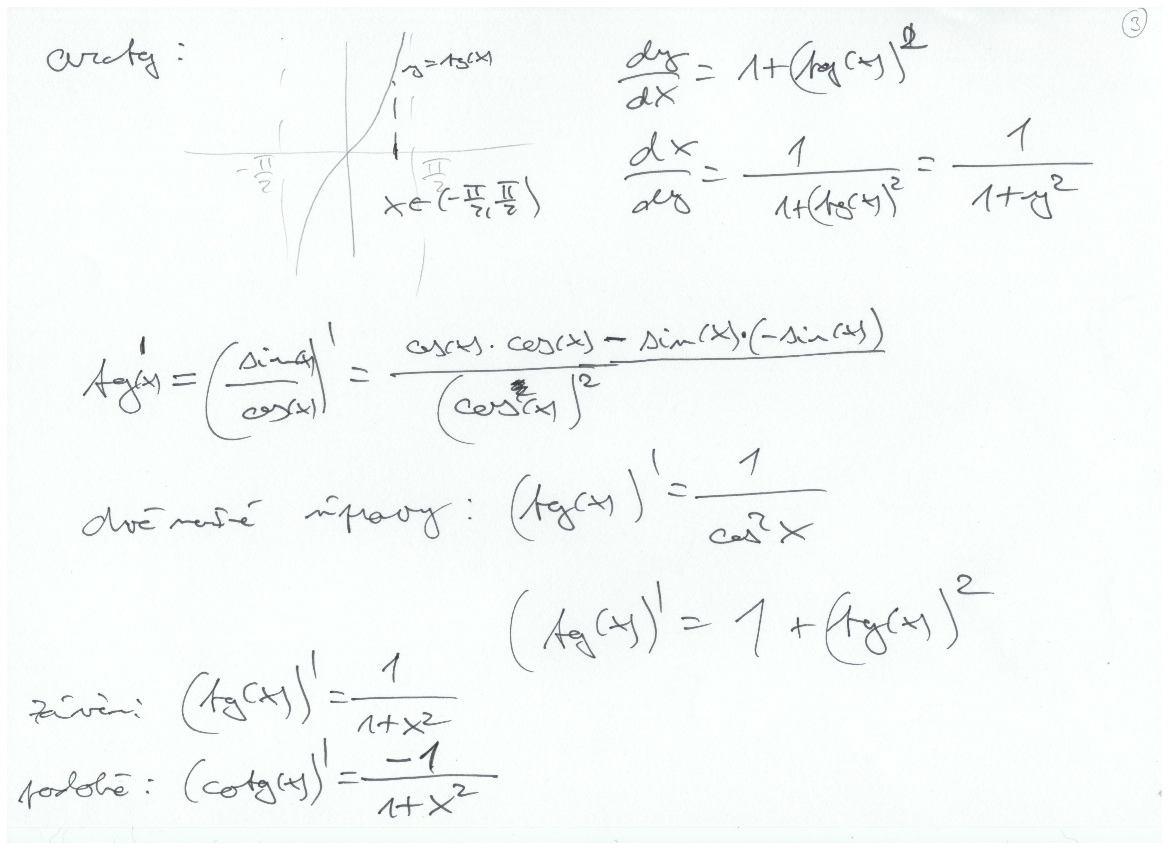 3
arctg:
y = tg(x)
-π/2
π/2
x ∈ (-π/2, π/2)
dy/dx = 1+(tg(x))^2
dx/dy = 1/(1+(tg(x))^2) = 1/(1+y^2)
tg'(x) = (sin(x)/cos(x))' = (cos(x) · cos(x) - sin(x)·(-sin(x)))/(cos(x))^2
dvě možné úpravy: (tg(x))' = 1/cos^2 x
(tg(x))' = 1 + (tg(x))^2
závěr: (tg(x))' = 1/(1+x^2)
podobě: (cotg(x))' = -1/(1+x^2)